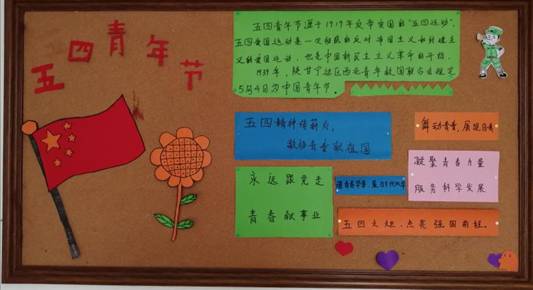 五四青年节
五四青年节源于1919年反帝爱国的"五四运动",
五四爱国运动是一次彻底的反对帝国主义和封建主
义的爱国运动,也是中国新民主主义革命的开始。
1939年,陕甘宁边区西北青年救国联合会规定
5月4日为中国青年节。
五四精神传薪火,
敬仰青春献祖国
舞动青春,展现自我
凝聚青春力量
服务科学发展
永远跟党走
青春献事业
五四火炬,点亮强国前程。